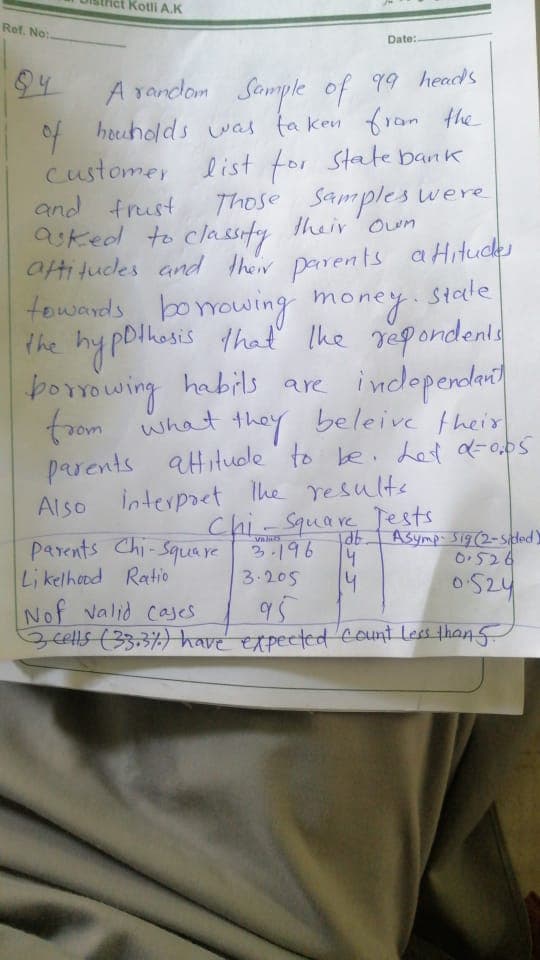 District Kotli A.K
Ref. No:
Date:
Q4 A random Sample of 99 heads
of houholds was taken from the
customer list for State bank
and frust Those Samples were
asked to classify their own
attitudes and their parents attitudes
towards borrowing money. State
the hypothosis that the repondents
borrowing habils are independant
from what they beleive their
parents attitude to be. Let α=0.05
Also interpret the results
Chi-Square Tests
Values df Asymp. Sig (2-sided)
Parents Chi-Square 3.196 4 0.526
Likelhood Ratio 3.205 4 0.524
N of valid cases 95
3 cells (33.3%) have expected count less than 5.